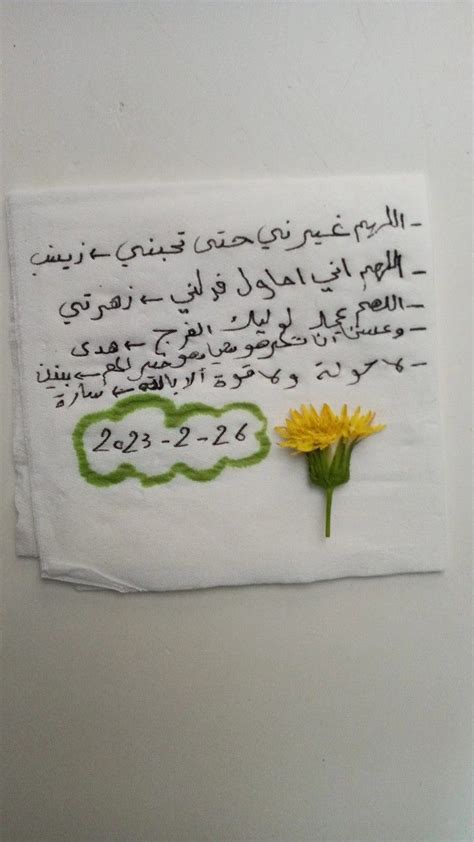 - اللهم غيرني حتى تحبني ← زينب
- اللهم اني احاول فدلني ← زهرتي
- اللهم عجل لوليك الفرج ← هدى
- وعسى ان تكرهو شيئا وهو خير لكم ← بنين
- لا حولة ولا قوة الا بالله ← سارة
2023-2-26